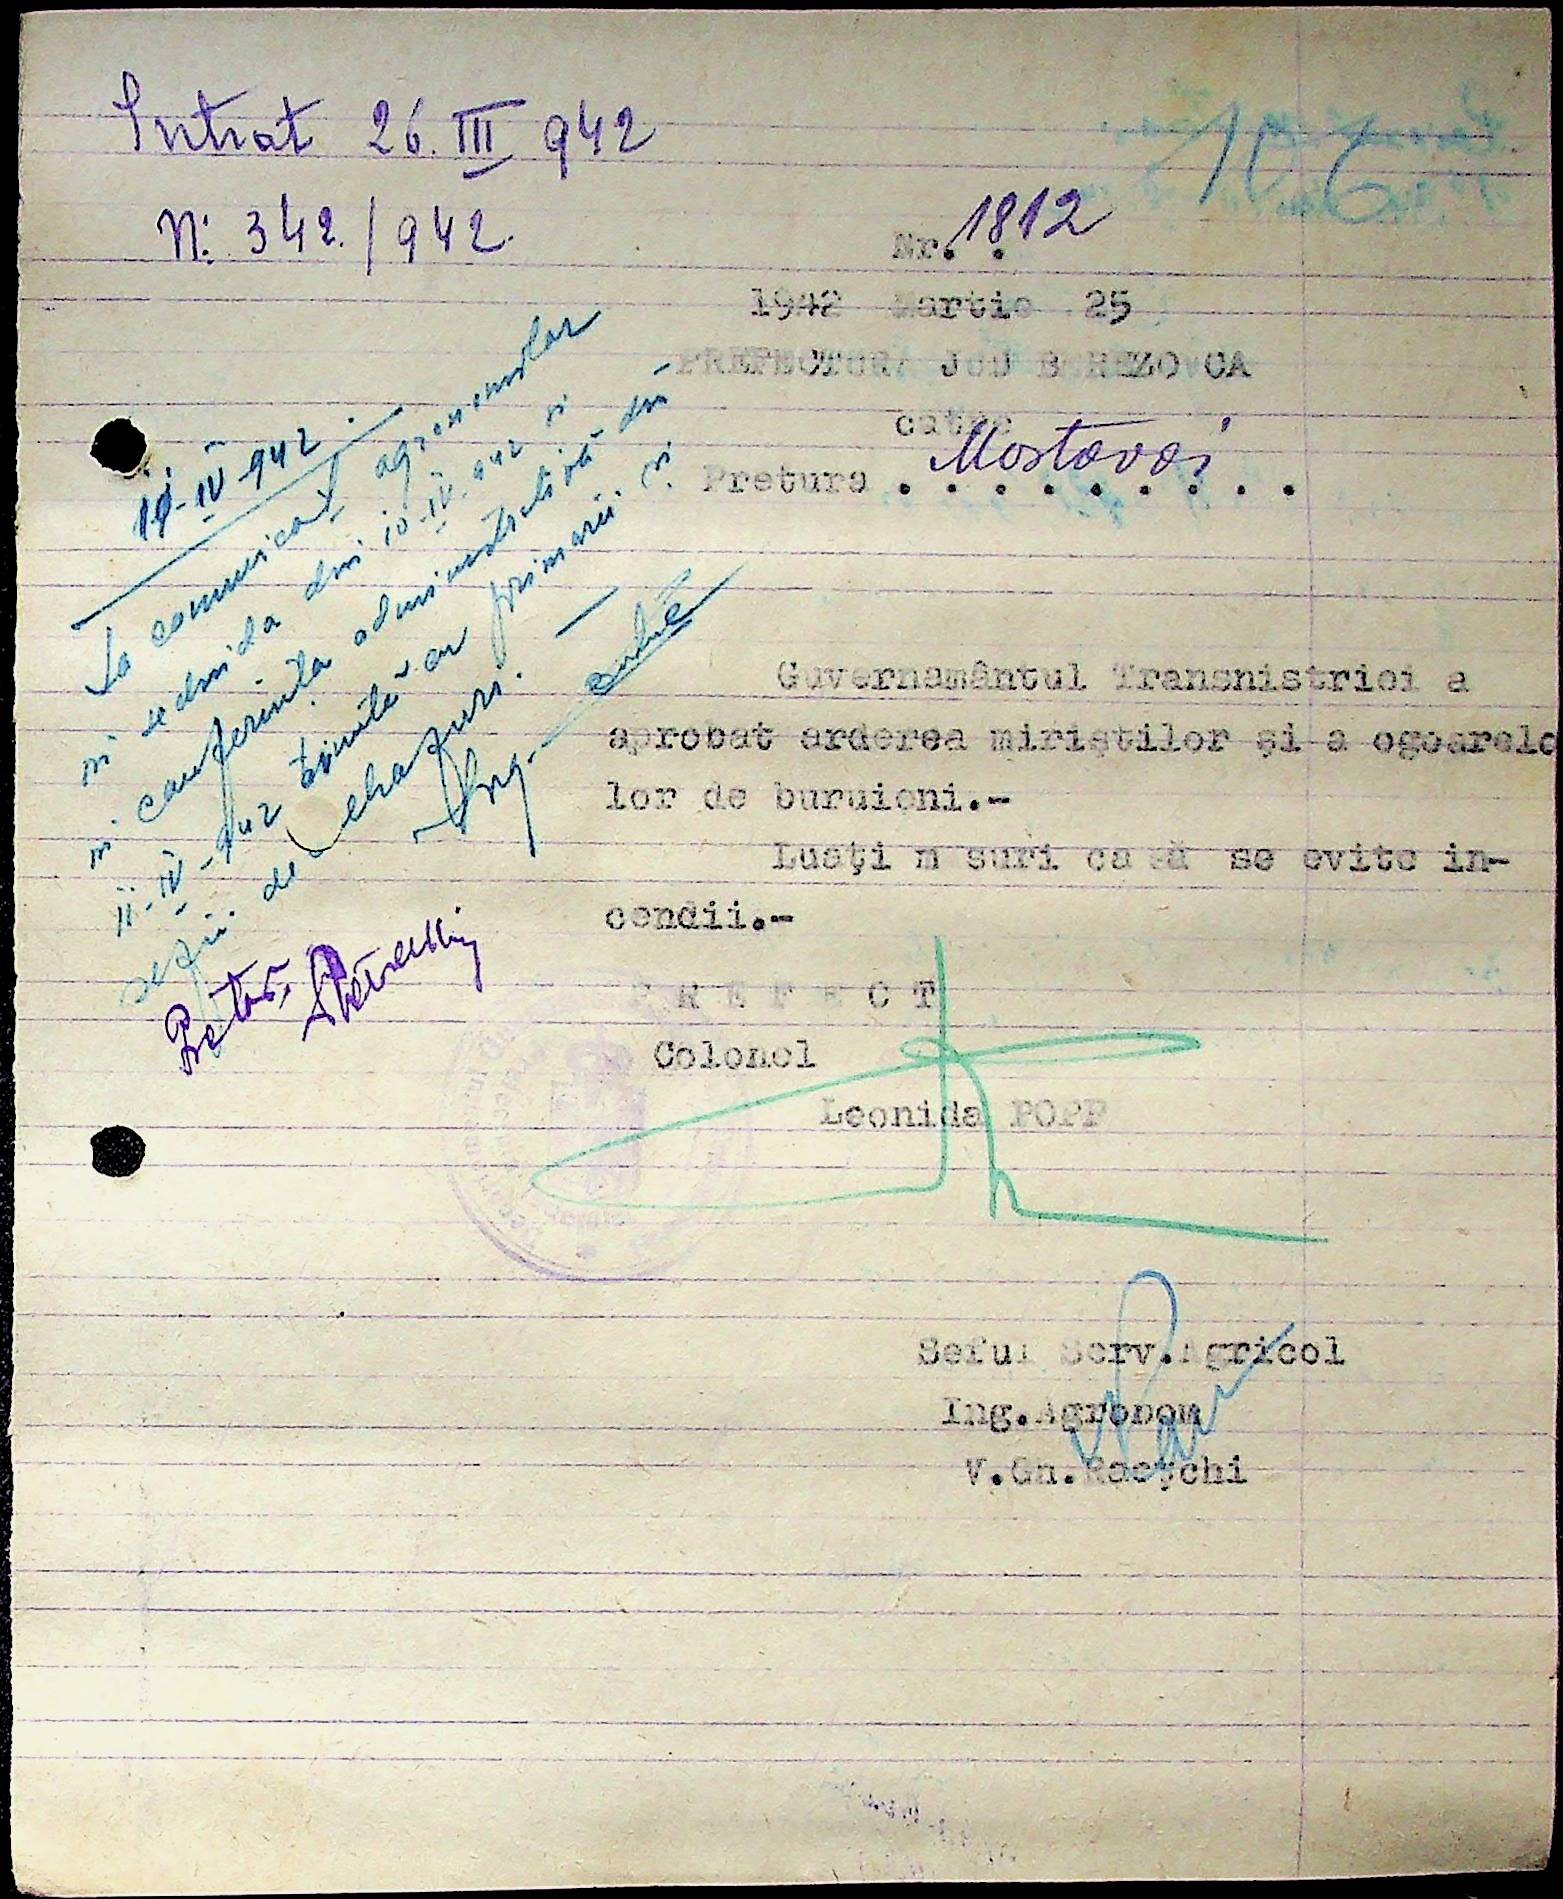 Intrat 26. III 942
N: 342. / 942.
Nr. 1812
1942 Martie 25
PREFECTURA JUD BEREZOVCA
catre
Pretura Mostovoi
11-IV-942.
S'a comunicat agronomilor
in sedinta din 10-IV-942 si
in conferinta administrativă din
11-IV-942 tinută cu primarii si
sefii de
Ing.
Pretor,
Guvernamântul Transnistriei a
aprobat arderea miriştilor şi a ogoarelo
lor de buruieni.-
Luaţi m suri ca să se evite in-
cendii.-
P R E F E C T
Colonel
Leonida POPP
Seful Serv.Agricol
Ing.Agronom
V.Gh.